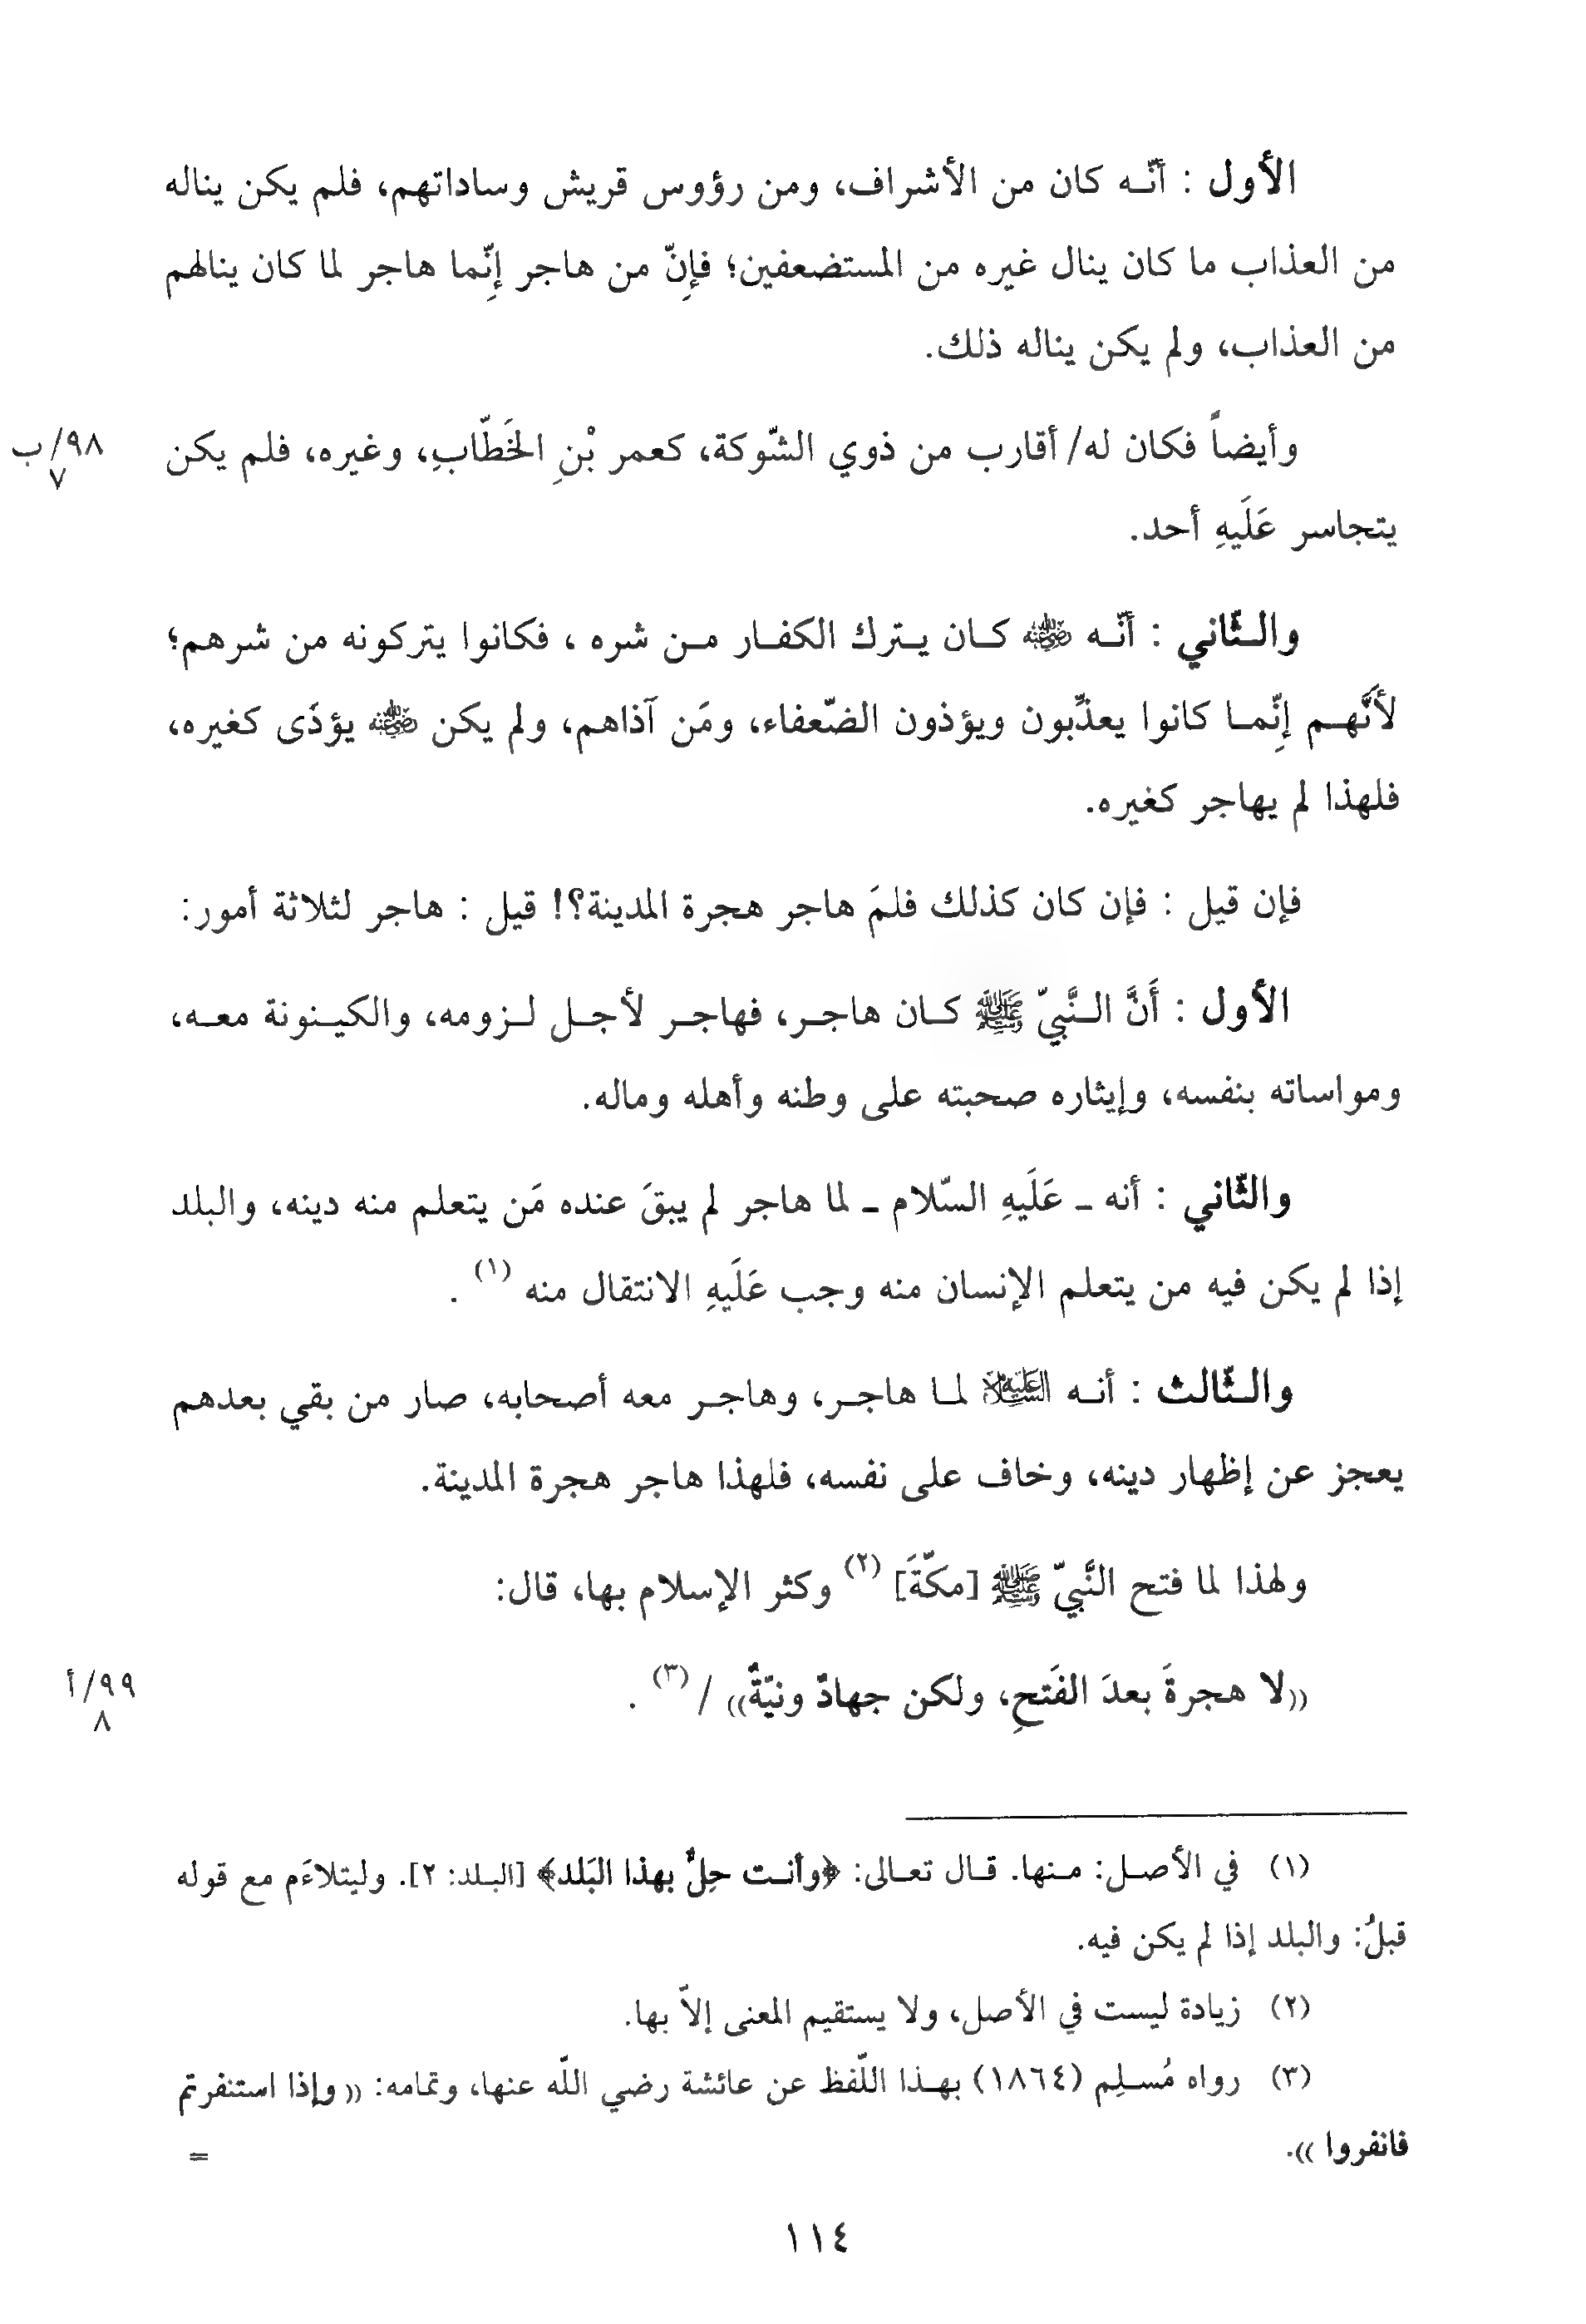 الأول : أنّـه كان من الأشراف، ومن رؤوس قريش وساداتهم، فلم يكن يناله
من العذاب ما كان ينال غيره من المستضعفين؛ فإِنّ من هاجر إِنّما هاجر لما كان ينالهم
من العذاب، ولم يكن يناله ذلك.
وأيضاً فكان له/ أقارب من ذوي الشّوكة، كعمر بْنِ الخَطّابِ، وغيره، فلم يكن
٩٨/ب
٧
يتجاسر عَلَيهِ أحد.
والـثّاني : أنّـه ﵁ كـان يـترك الكفـار مـن شره ، فكانوا يتركونه من شرهم؛
لأَنَّهـم إِنّمـا كانوا يعذِّبون ويؤذون الضّعفاء، ومَن آذاهم، ولم يكن ﵁ يؤذَى كغيره،
فلهذا لم يهاجر كغيره.
فإن قيل : فإن كان كذلك فلمَ هاجر هجرة المدينة؟! قيل : هاجر لثلاثة أمور:
الأول : أَنَّ الـنَّبيّ ﷺ كـان هاجـر، فهاجـر لأجـل لـزومه، والكيـنونة معـه،
ومواساته بنفسه، وإيثاره صحبته على وطنه وأهله وماله.
والثّاني : أنه ـ عَلَيهِ السّلام ـ لما هاجر لم يبقَ عنده مَن يتعلم منه دينه، والبلد
إذا لم يكن فيه من يتعلم الإنسان منه وجب عَلَيهِ الانتقال منه (١) .
والـثّالث : أنـه ﵇ لمـا هاجـر، وهاجـر معه أصحابه، صار من بقي بعدهم
يعجز عن إظهار دينه، وخاف على نفسه، فلهذا هاجر هجرة المدينة.
ولهذا لما فتح النَّبيّ ﷺ [مكّةَ] (٢) وكثر الإسلام بها، قال:
((لا هجرةَ بعدَ الفَتحِ، ولكن جهادٌ ونيّةٌ)) / (٣) .
٩٩/أ
٨
(١) في الأصـل: مـنها. قـال تعـالى: ﴿وأنـت حِلٌّ بهذا البَلد﴾ [البـلد: ٢]. وليتلاءَم مع قوله
قبلُ: والبلد إذا لم يكن فيه.
(٢) زيادة ليست في الأصل، ولا يستقيم المعنى إلاّ بها.
(٣) رواه مُسـلِم (١٨٦٤) بهـذا اللّفظ عن عائشة رضي اللّه عنها، وتمامه: (( وإذا استنفرتم
فانفروا )).
=
١١٤